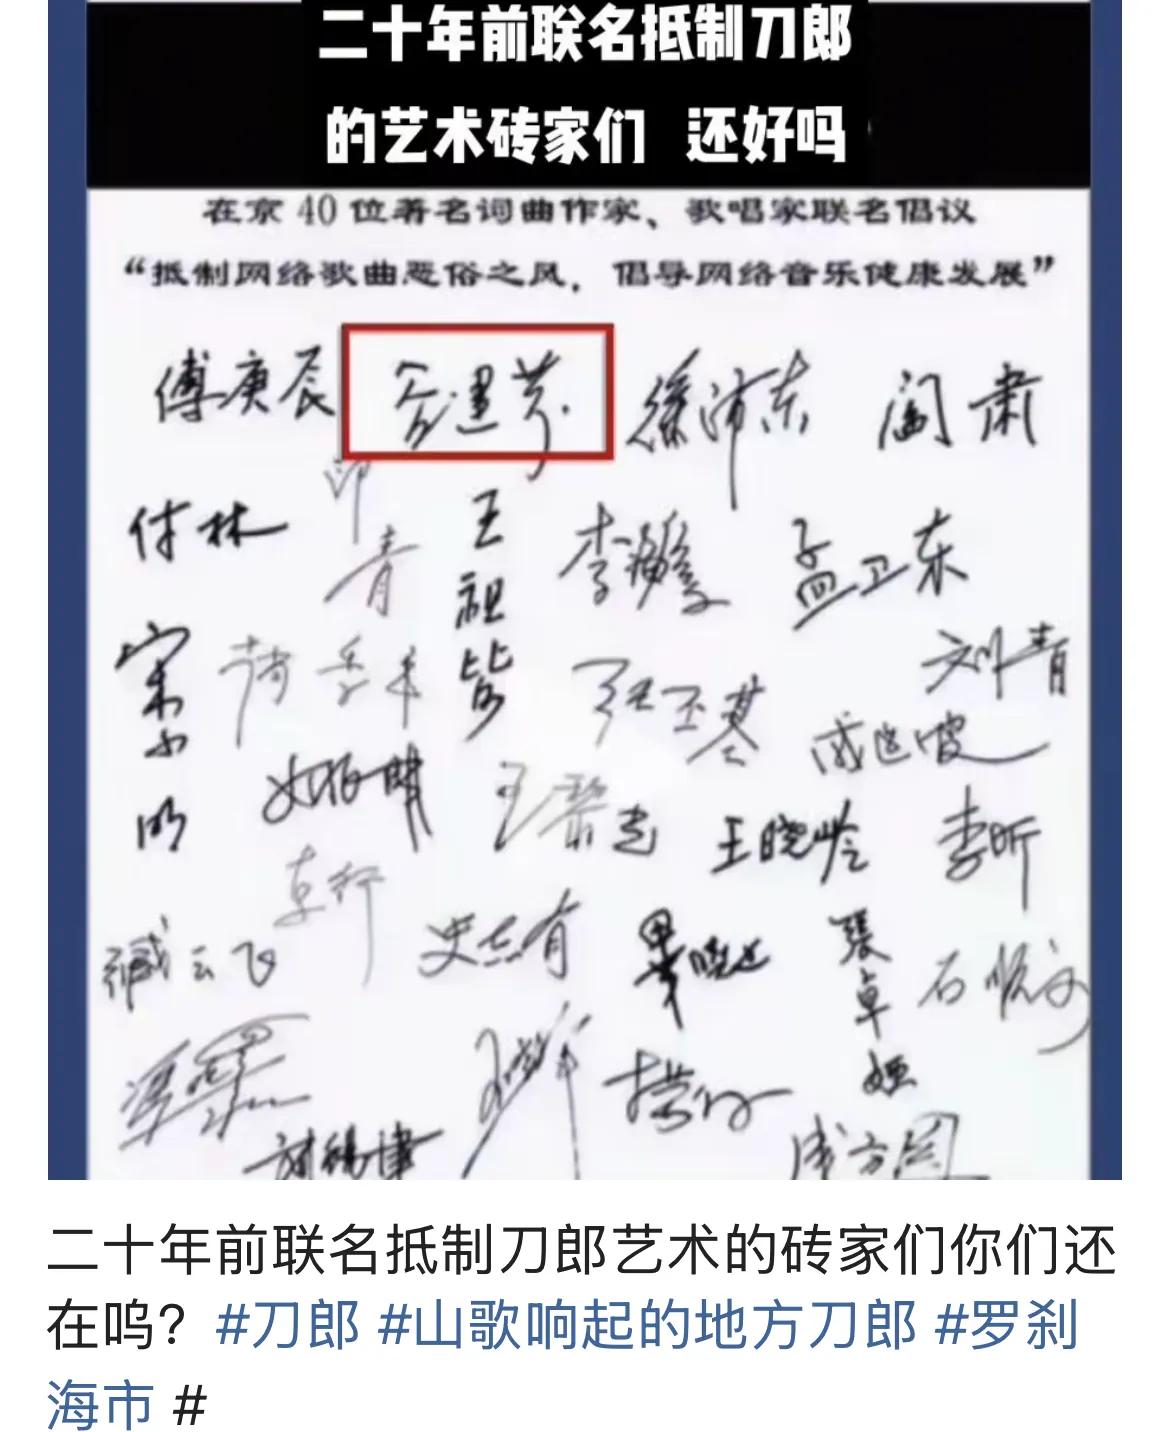 二十年前联名抵制刀郎
的艺术砖家们 还好吗
在京 40 位著名词曲作家、歌唱家联名倡议
“抵制网络歌曲恶俗之风，倡导网络音乐健康发展”
傅庚辰 谷建芬 徐沛东 阎肃
付林 印青 王祖皆 李海鹰 孟卫东
宋小明 张丕基 刘青
戚建波
王黎光 王晓岭 李昕
臧云飞 京行 史志有 张卓娅 石顺义
成方圆
二十年前联名抵制刀郎艺术的砖家们你们还
在呜？#刀郎 #山歌响起的地方刀郎 #罗刹
海市 #